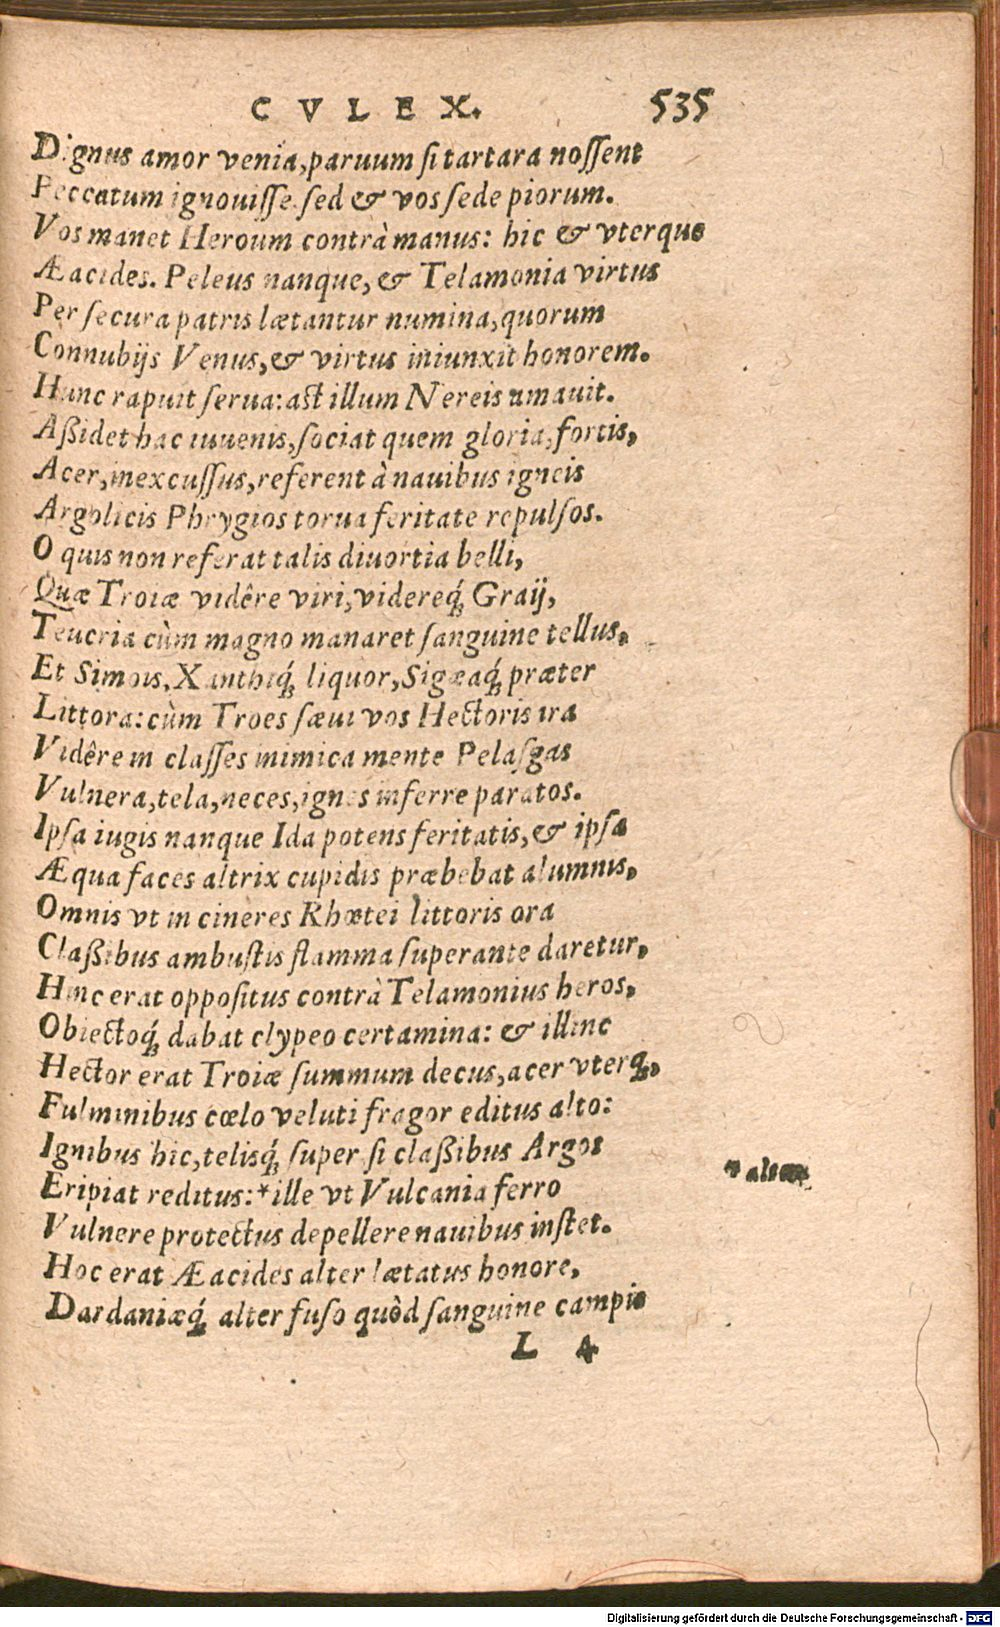 CVLEX. 535
Dignus amor venia, paruum si tartara nossent
Peccatum ignouisse. sed & vos sede piorum.
Vos manet Heroum contrà manus: hic & vterque
Æacides. Peleus nanque, & Telamonia virtus
Per secura patris lætantur numina, quorum
Connubijs Venus, & virtus iniunxit honorem.
Hunc rapuit serua: ast illum Nereis amauit.
Aßidet hac iuuenis, sociat quem gloria, fortis,
Acer, inexcussus, referent à nauibus igneis
Argolicis Phrygios torua feritate repulsos.
O quis non referat talis diuortia belli,
Quæ Troiæ vidêre viri, videreq́; Graij,
Teucria cùm magno manaret sanguine tellus,
Et Simois, Xanthiq́; liquor, Sigæaq́; præter
Littora: cùm Troes sæui vos Hectoris ira
Vidêre in classes inimica mente Pelasgas
Vulnera, tela, neces, ignes inferre paratos.
Ipsa iugis nanque Ida potens feritatis, & ipsa
Æqua faces altrix cupidis præbebat alumnis,
Omnis vt in cineres Rhœtei littoris ora
Claßibus ambustis flamma superante daretur,
Hinc erat oppositus contrà Telamonius heros,
Obiectoq́; dabat clypeo certamina: & illinc
Hector erat Troiæ summum decus, acer vterq;,
Fulminibus cœlo veluti fragor editus alto:
Ignibus hic, telisq́; super si claßibus Argos
Eripiat reditus:* ille vt Vulcania ferro
Vulnere protectus depellere nauibus instet.
Hoc erat Æacides alter lætatus honore,
Dardaniæq́; alter fuso quòd sanguine campis
L 4
Digitalisierung gefördert durch die Deutsche Forschungsgemeinschaft - DFG